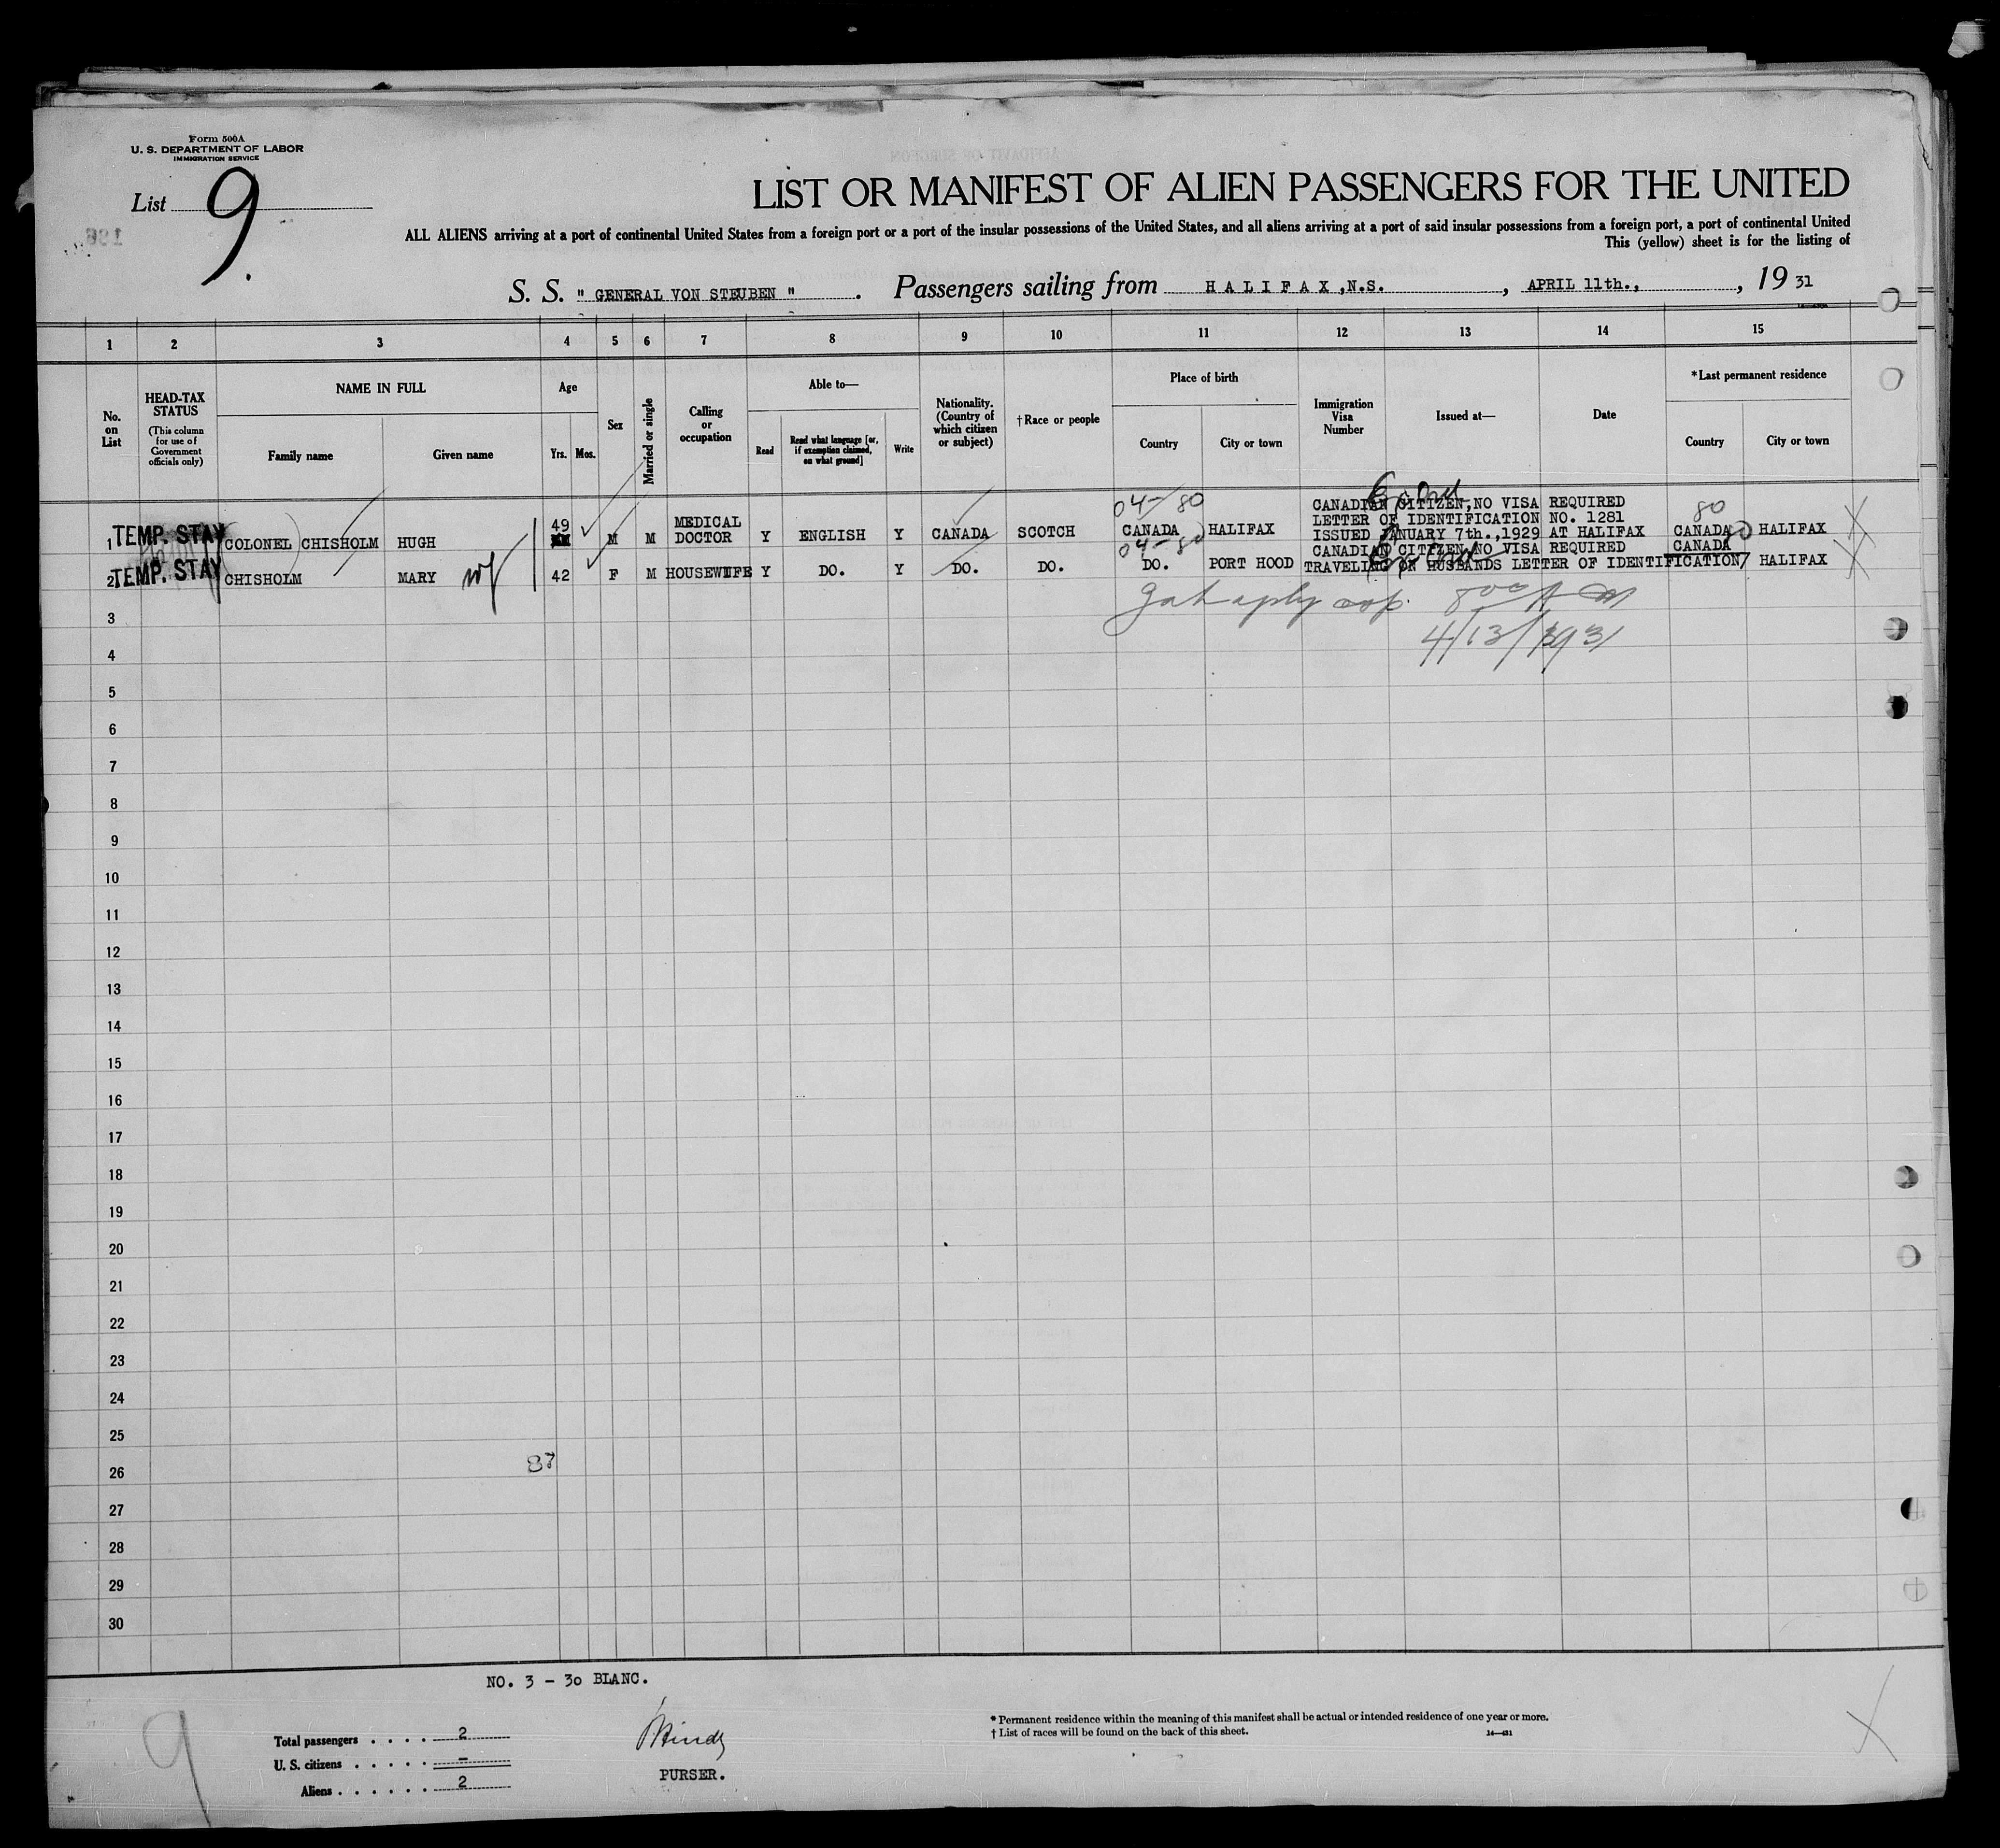 Form 500A
U. S. DEPARTMENT OF LABOR
IMMIGRATION SERVICE
List 9.
LIST OR MANIFEST OF ALIEN PASSENGERS FOR THE UNITED
ALL ALIENS arriving at a port of continental United States from a foreign port or a port of the insular possessions of the United States, and all aliens arriving at a port of said insular possessions from a foreign port, a port of continental United
This (yellow) sheet is for the listing of
S. S. " GENERAL VON STEUBEN " . Passengers sailing from H A L I F A X ,N.S. , APRIL 11th., , 19 31
1 2 3 4 5 6 7 8 9 10 11 12 13 14 15
No. on List
HEAD-TAX STATUS
(This column for use of Government officials only)
NAME IN FULL
Family name
Given name
Age
Yrs. Mos.
Sex
Married or single
Calling or occupation
Able to—
Read
Read what language [or, if exemption claimed, on what ground]
Write
Nationality. (Country of which citizen or subject)
†Race or people
Place of birth
Country
City or town
Immigration Visa Number
Issued at—
Date
*Last permanent residence
Country
City or town
04-80
80
CANADIAN CITIZEN,NO VISA REQUIRED
LETTER OF IDENTIFICATION NO. 1281
ISSUED JANUARY 7th.,1929 AT HALIFAX
1 TEMP. STAY COLONEL CHISHOLM HUGH 49 M M MEDICAL DOCTOR Y ENGLISH Y CANADA SCOTCH CANADA HALIFAX CANADA HALIFAX
04-80
80
CANADIAN CITIZEN,NO VISA REQUIRED
TRAVELING ON HUSBANDS LETTER OF IDENTIFICATION
2 TEMP. STAY CHISHOLM MARY wf 42 F M HOUSEWIFE Y DO. Y DO. DO. DO. PORT HOOD CANADA HALIFAX
4/13/1931
3
4
5
6
7
8
9
10
11
12
13
14
15
16
17
18
19
20
21
22
23
24
25
87
26
27
28
29
30
NO. 3 - 30 BLANC.
9
Total passengers . . . . 2
U. S. citizens . . . . . -
Aliens . . . . . . 2
PURSER.
* Permanent residence within the meaning of this manifest shall be actual or intended residence of one year or more.
† List of races will be found on the back of this sheet.
14—431